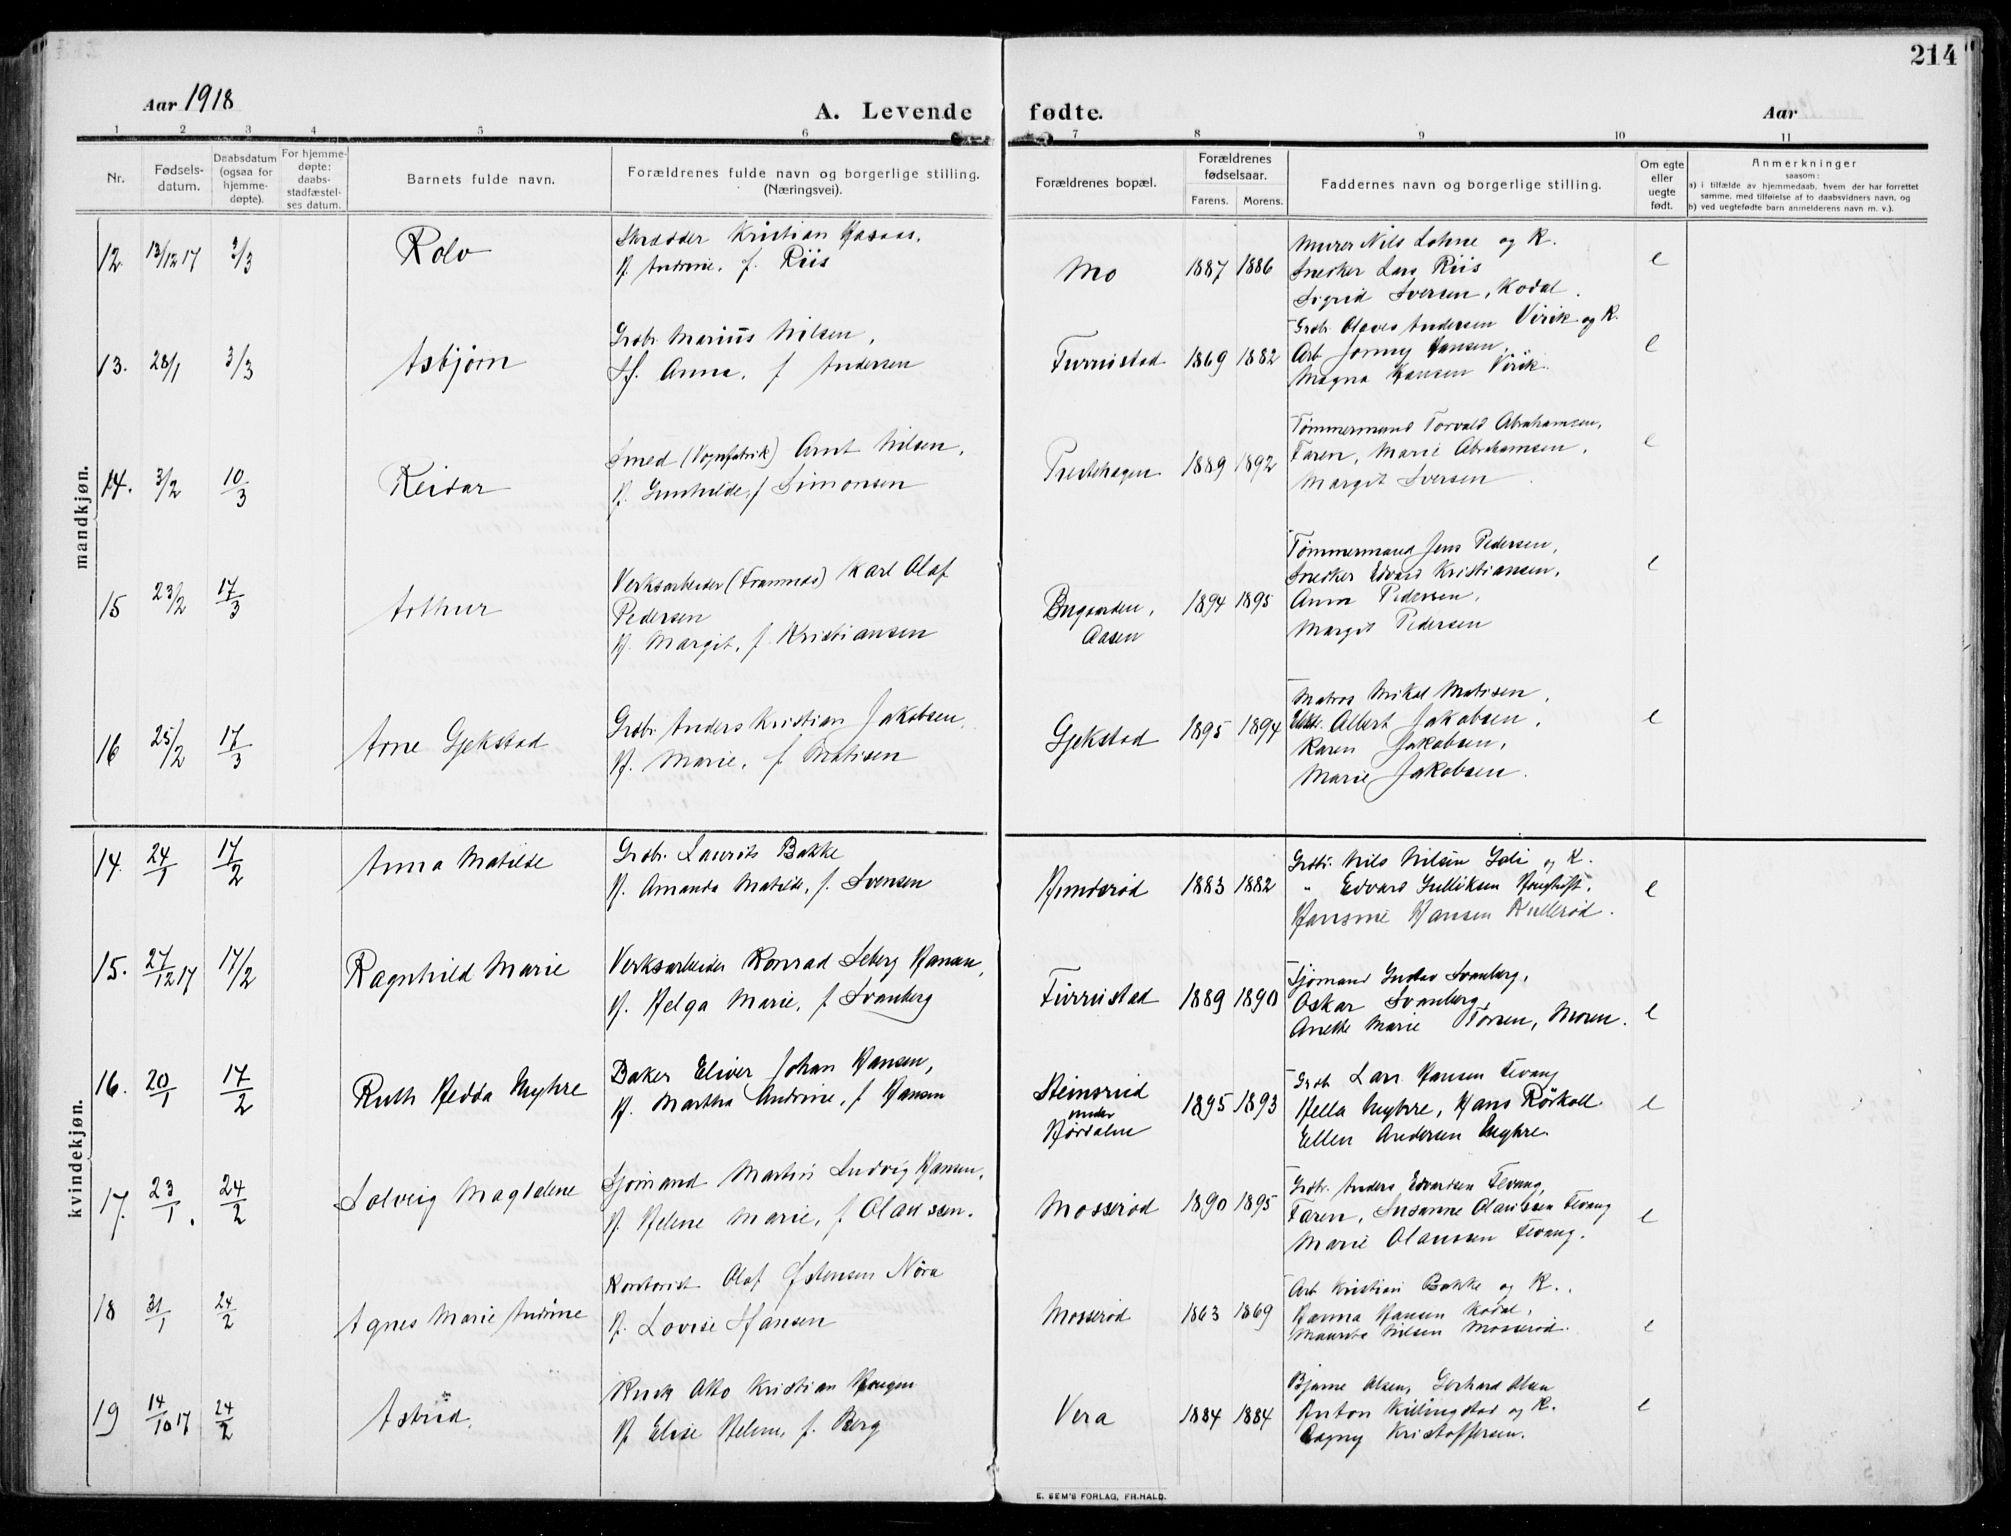 214
Aar 1918
A. Levende fødte.
Aar
1 2 3 4 5 6 7 8 9 10 11
Nr.
Fødsels-
datum.
Daabsdatum
(ogsaa for
hjemme-
døpte).
For hjemme-
døpte:
daabs-
stadfæstel-
ses datum.
Barnets fulde navn.
Forældrenes fulde navn og borgerlige stilling.
(Næringsvei).
Forældrenes bopæl.
Forældrenes
fødselsaar.
Farens. Morens.
Faddernes navn og borgerlige stilling.
Om egte
eller
uegte
født.
Anmerkninger
saasom:
a) i tilfælde av hjemmedaab, hvem der har forrettet
samme, med tilføielse af to daabsvidners navn, og
b) ved uegtefødte barn anmelderens navn m. v.).
mandkjøn.
12. 13/12 17 3/3 Rolv
Skrædder Kristian
H. Andrine, f. Riis
Mo 1887 1886
Murer Nils Lohne og K.
Snedker Lars Riis
Sigrid Iversen, Kodal.
e
13. 28/1 3/3 Asbjørn
Grdbr. Marius Nilsen,
H. Anna, f Andersen
Furrustad 1869 1882
Grdbr. Olaves Andersen Virik og K.
Arb Jonny Hansen,
Magna Hansen Virik.
e
14. 3/2 10/3 Reidar
Smed (Vognfabrik) Arnt Nilsen,
H. Gunhilde, f Simonsen
Prestehagen 1889 1892
Tømmermand Torvald Abrahamsen,
Faren, Marie Abrahamsen,
Margit Iversen
e
15 23/2 17/3 Arthur
Verksarbeider (Framnæs) Karl Olaf
Pedersen
H. Margit, f. Kristiansen
Bugaarden,
Aasen
1894 1895
Tømmermand Jens Pedersen,
Snedker Edvard Kristiansen,
Anna Pedersen,
Margit Pedersen
e
16 25/2 17/3 Arne Gjekstad
Grdbr. Anders Kristian Jakobsen,
H. Marie, f Matisen
Gjekstad 1895 1894
Matros Mikal Matisen,
Albert Jakobsen,
Karen Jakobsen,
Marie Jakobsen.
e
kvindekjøn.
14. 24/1 17/2 Anna Matilde
Grdbr. Laurits Bakke
H. Amanda Matilde, f. Svensen
Hunderød 1883 1882
Grdbr. Nils Nilsen Goli og K.
" Edvard Gulliksen
Hansine Hansen Kullerød.
e
15. 27/12 17 17/2 Ragnhild Marie
Verksarbeider Konrad Seberg Hansen,
H. Helga Marie, f Svanberg
Furrustad 1889 1890
Sjømand Gustav Svanberg,
Oskar Svanberg,
Anette Marie Torsen, Moren.
e
16. 20/1 17/2 Ruth Hedda Nyhre
Baker Eliver Johan Hansen,
H. Martha Andrine, f Hansen
Steinsrud
under
Hørdalen
1895 1893
Grdb. Lars Hansen Tevang
Hella Nyhre, Hans Rørkoll
Ellen Andersen Nyhre.
e
17. 23/1. 24/2 Solveig Magdalene
Sjømand Martin Ludvig Hansen,
H. Helene Marie, f Olaussen.
Mosserød 1890 1895
Grdbr. Anders Edvardsen Tevang,
Faren, Susanne Olaussen Tevang
Marie Olaussen Tevang.
e
18 31/1 24/2 Agnes Marie Andrine
Kontorist Olaf Østensen Nøra
H. Lovise Hansen
Mosserød 1863 1869
Arb Kristian Bakke og K.,
Hanna Hansen Kodal,
Nilsen Mosserød.
e
19 14/10 17 24/2 Astrid.
Otto Kristian Haugen
H. Elise Helene, f. Berg
Vera 1884 1884
Bjarne Olsen, Gerhard Olsen
Anton Killingstad og K.
Dagny Kristoffersen.
e
E. SEM'S FORLAG, FR.HALD.